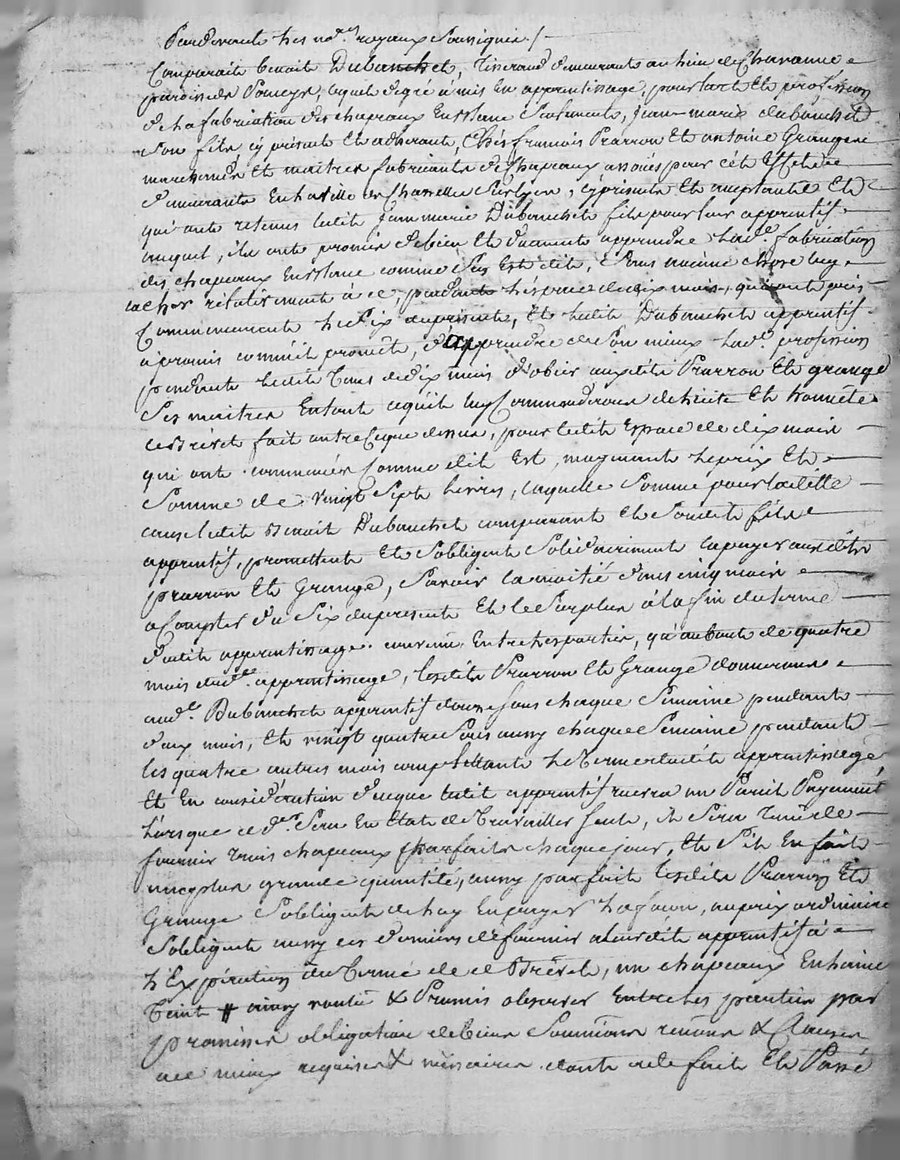 Pardevants les no.res royaux soussignés /
Comparait benoit Dubanchet, tisserand demeurants au lieu de Chavanne
paroisse de Pomeys, lequel degré a mis en apprentissage, pour lart et profession
de la fabrication des chapeaux en laine seulement, jean-marie dubanchet
son fils cy présent et adhérant, chés françois Prarron et antoine Grange
marchands et maitres fabricants de chapeaux associés pour cet effet
demeurants en la ville de Chazelle sur lyon, cy présents et acceptants et
qui ont retenus ledit jean marie Dubanchet fils pour leur apprentif
auquel, ils ont promis de bien et duement apprendre lad.e fabrication
des chapeaux en laine comme sus est dit, sans aucune chose luy
cacher relativement à ce, pendant l'espace de dix mois, qui ont pris
Commencement le six du présent, et ledit Dubanchet apprentif
a promis comme il promet, d'apprendre de son mieux lad.e profession
pendant ledit tems de dix mois d'obéir auxdits Prarron et grange
ses maitres en tout ce qu'ils luy commanderons de licite et honnête
ce brévet fait outre ce que dessus, pour ledit espace de dix mois
qui ont commencés comme dit est, moyenant le prix et
somme de vingt sept livres, laquelle somme pour ladite
cause ledit benoit Dubanchet comparant et sondit fils
apprentif, promettent et s'obligent solidairement la payer auxdits
prarron et Grange, savoir la moitié dans cinq mois
a Compter du six du présent et le surplus à la fin du terme
dudit apprentissage. convenu entre les parties, qu'au bout de quatre
mois dud.t apprentissage, lesdits Prarron et Grange donnerons
aud.t Dubanchet apprentif douze sous chaque semaine pendant
deux mois, et vingt quatre sous aussy chaque semaine pendant
les quatre autres mois complettants le terme dudit apprentissage
Et en considération de ce que ledit apprentif recevra un pareil payement
lorsque ce d.er sera en état de travailler seul, il sera tenu de
fournir trois chapeaux parfaits chaque jour, et s'il en fait
une plus grande quantité, aussy parfait lesdits Prarron et
Grange s'obligent de luy en payer la façon, au prix ordinaire
s'obligent aussy ces derniers de fournir audit apprentif à
l'expiration du terme de ce brévet, un chapeaux en laine
teint # ainsy voulu & promis observer entre les parties par
promisses obligation de biens soumissions renons & clauses
ace mieux requises & nécessaires. dont acte fait et Passé